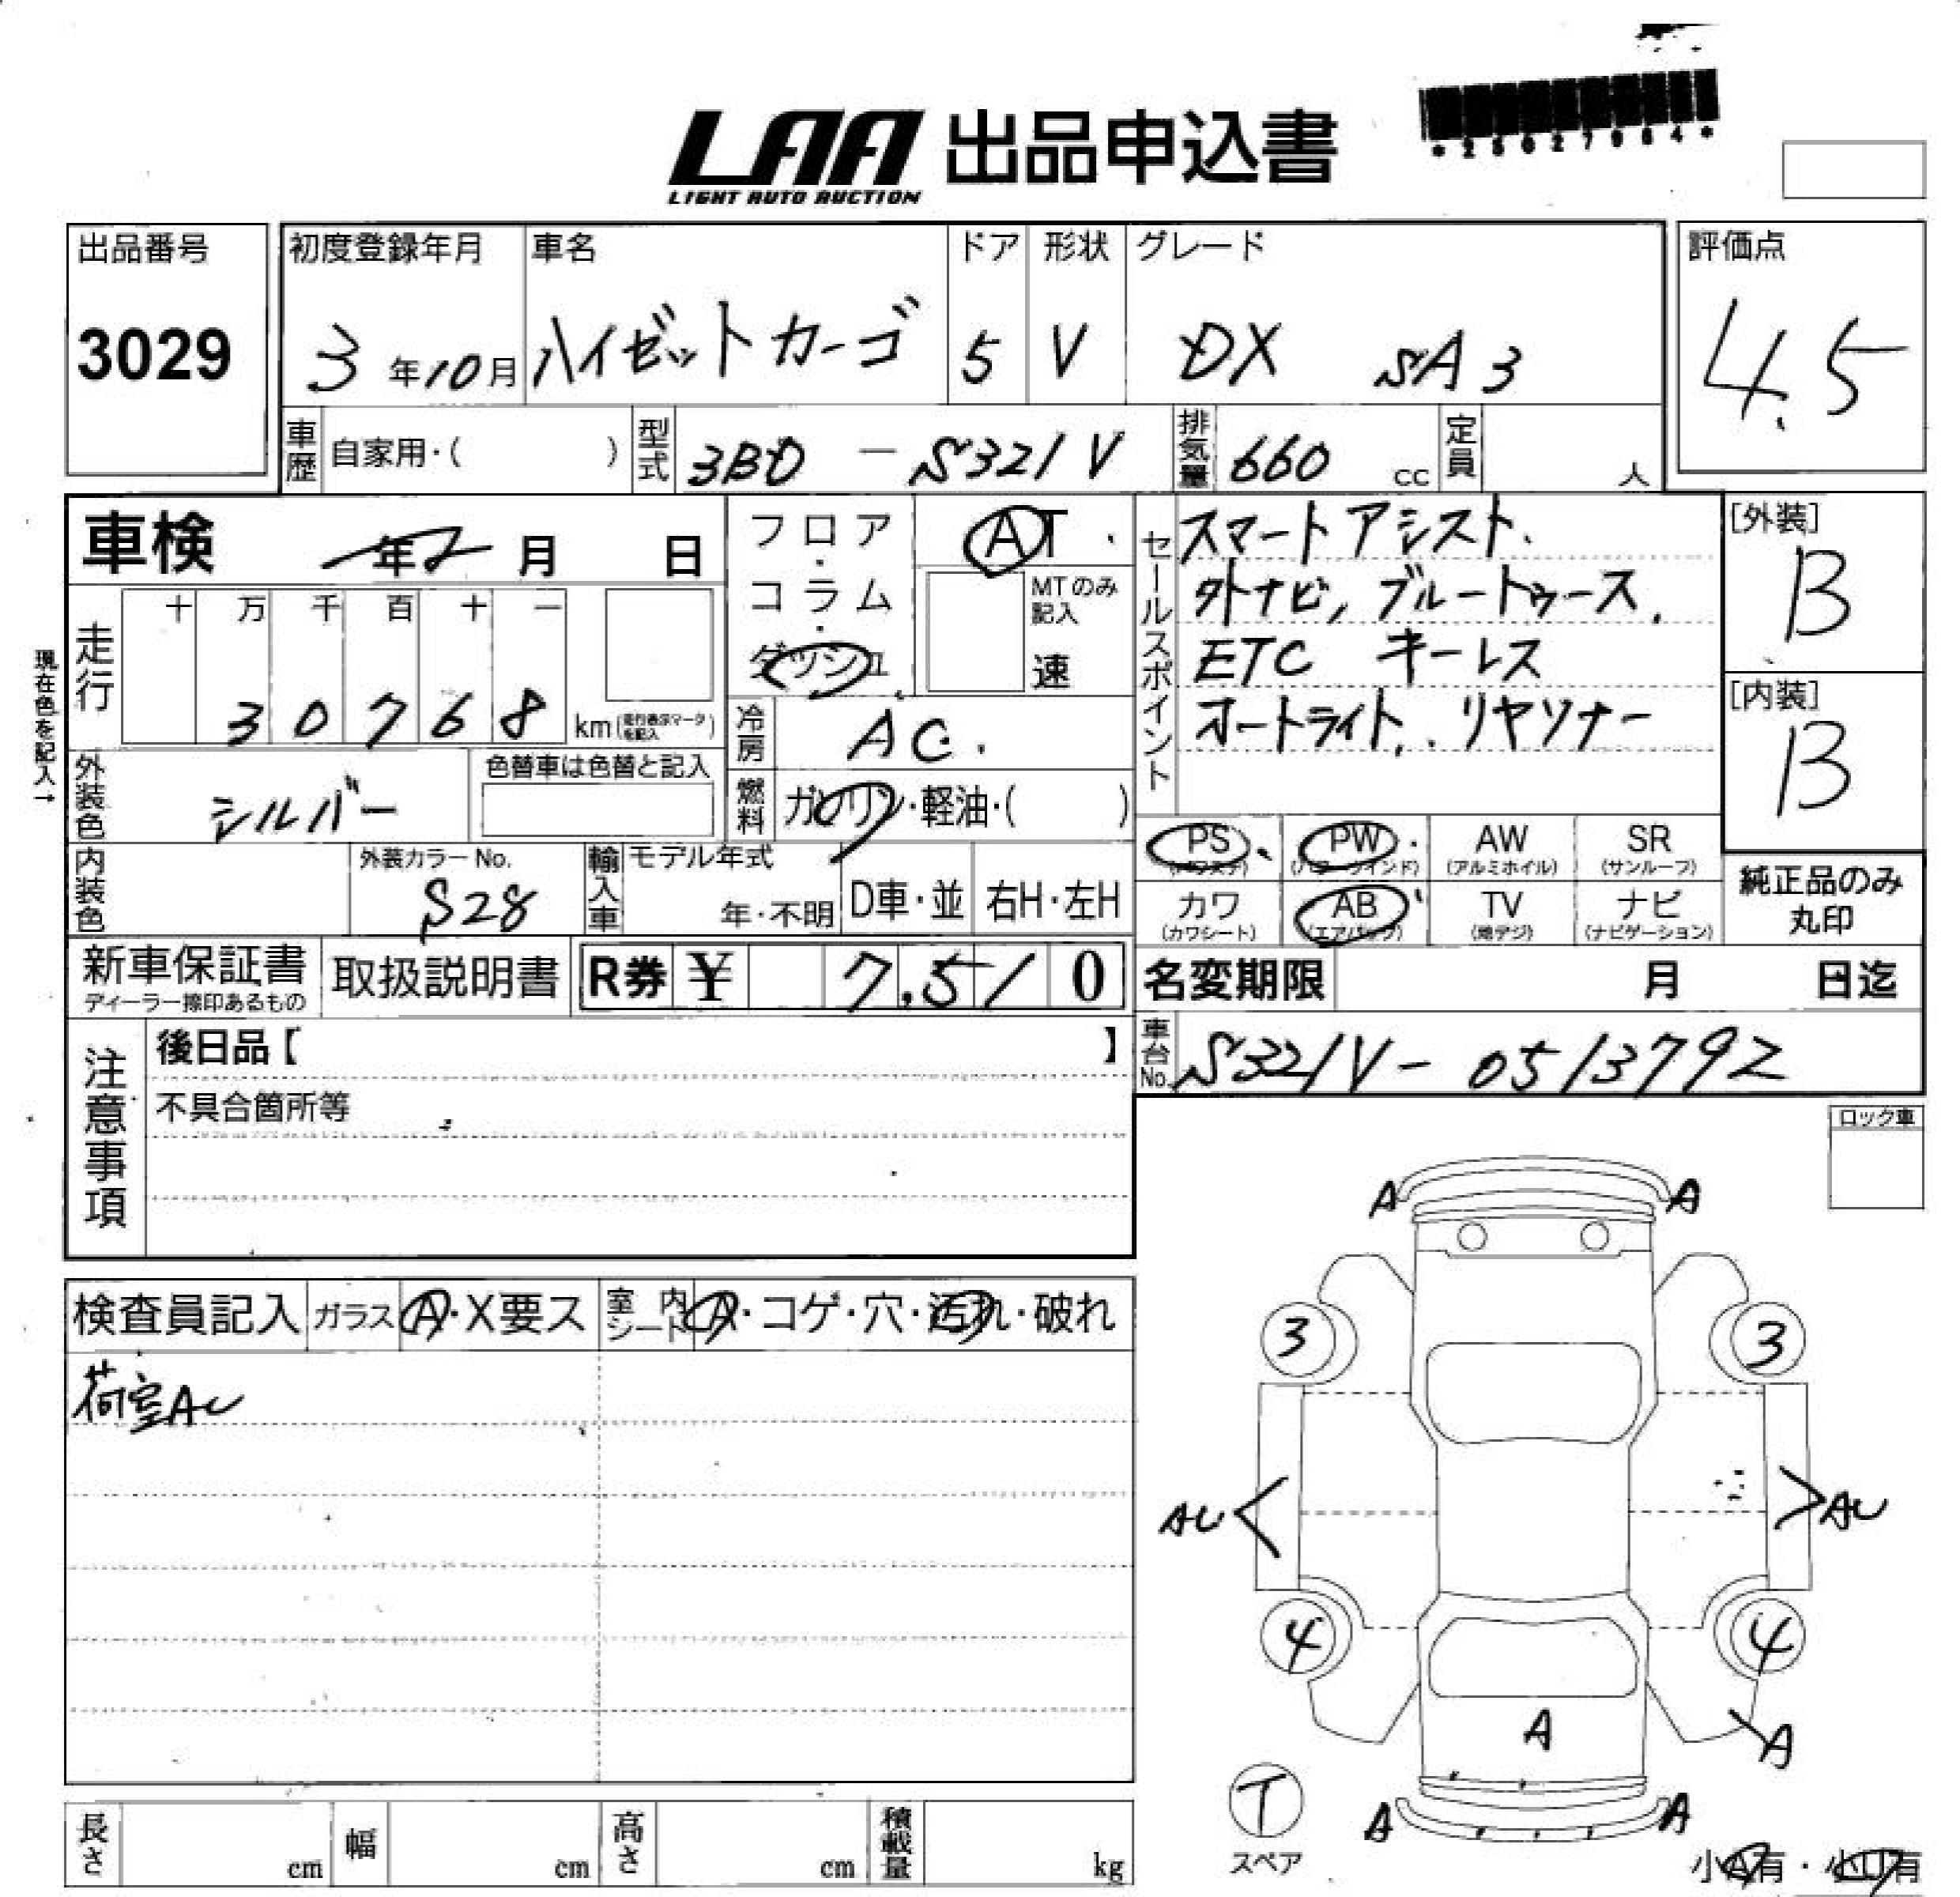 LAA 出品申込書
LIGHT AUTO AUCTION
出品番号
3029
初度登録年月
3年10月
車名
ハイゼットカーゴ
ドア
5
形状
V
グレード
DX SA3
評価点
4.5
車歴 自家用・( )
型式 3BD-S321V
排気量 660 cc
定員 人
車検 年2月 日
走行 十 万 千 百 十 一
30768 km
現在色を記入→
外装色 シルバー
色替車は色替と記入
内装色
外装カラーNo.
S28
フロア・コラム・ダッシュ
AT
MTのみ記入
速
冷房 AC.
燃料 ガソリン・軽油・( )
輸入車 モデル年式
年・不明 D車・並 右H・左H
セールスポイント
スマートアシスト.
外ナビ, ブルートゥース.
ETC キーレス
オートライト. リヤソナー
[外装]
B
[内装]
B
PS PW AW SR
(パワステ) (パワーウインド) (アルミホイル) (サンルーフ)
カワ AB TV ナビ
(カワシート) (エアバック) (地デジ) (ナビゲーション)
純正品のみ
丸印
新車保証書
ディーラー捺印あるもの
取扱説明書
R券 ¥ 7,510
名変期限 月 日迄
車台No. S321V-0513792
注意事項
後日品【 】
不具合箇所等
ロック車
検査員記入 ガラス A・X要ス 室内シート A・コゲ・穴・汚れ・破れ
荷室AU
A A
3 3
AU AU
4 4
A
A
T
スペア
A A
小A有・小U有
長さ cm 幅 cm 高さ cm 積載量 kg